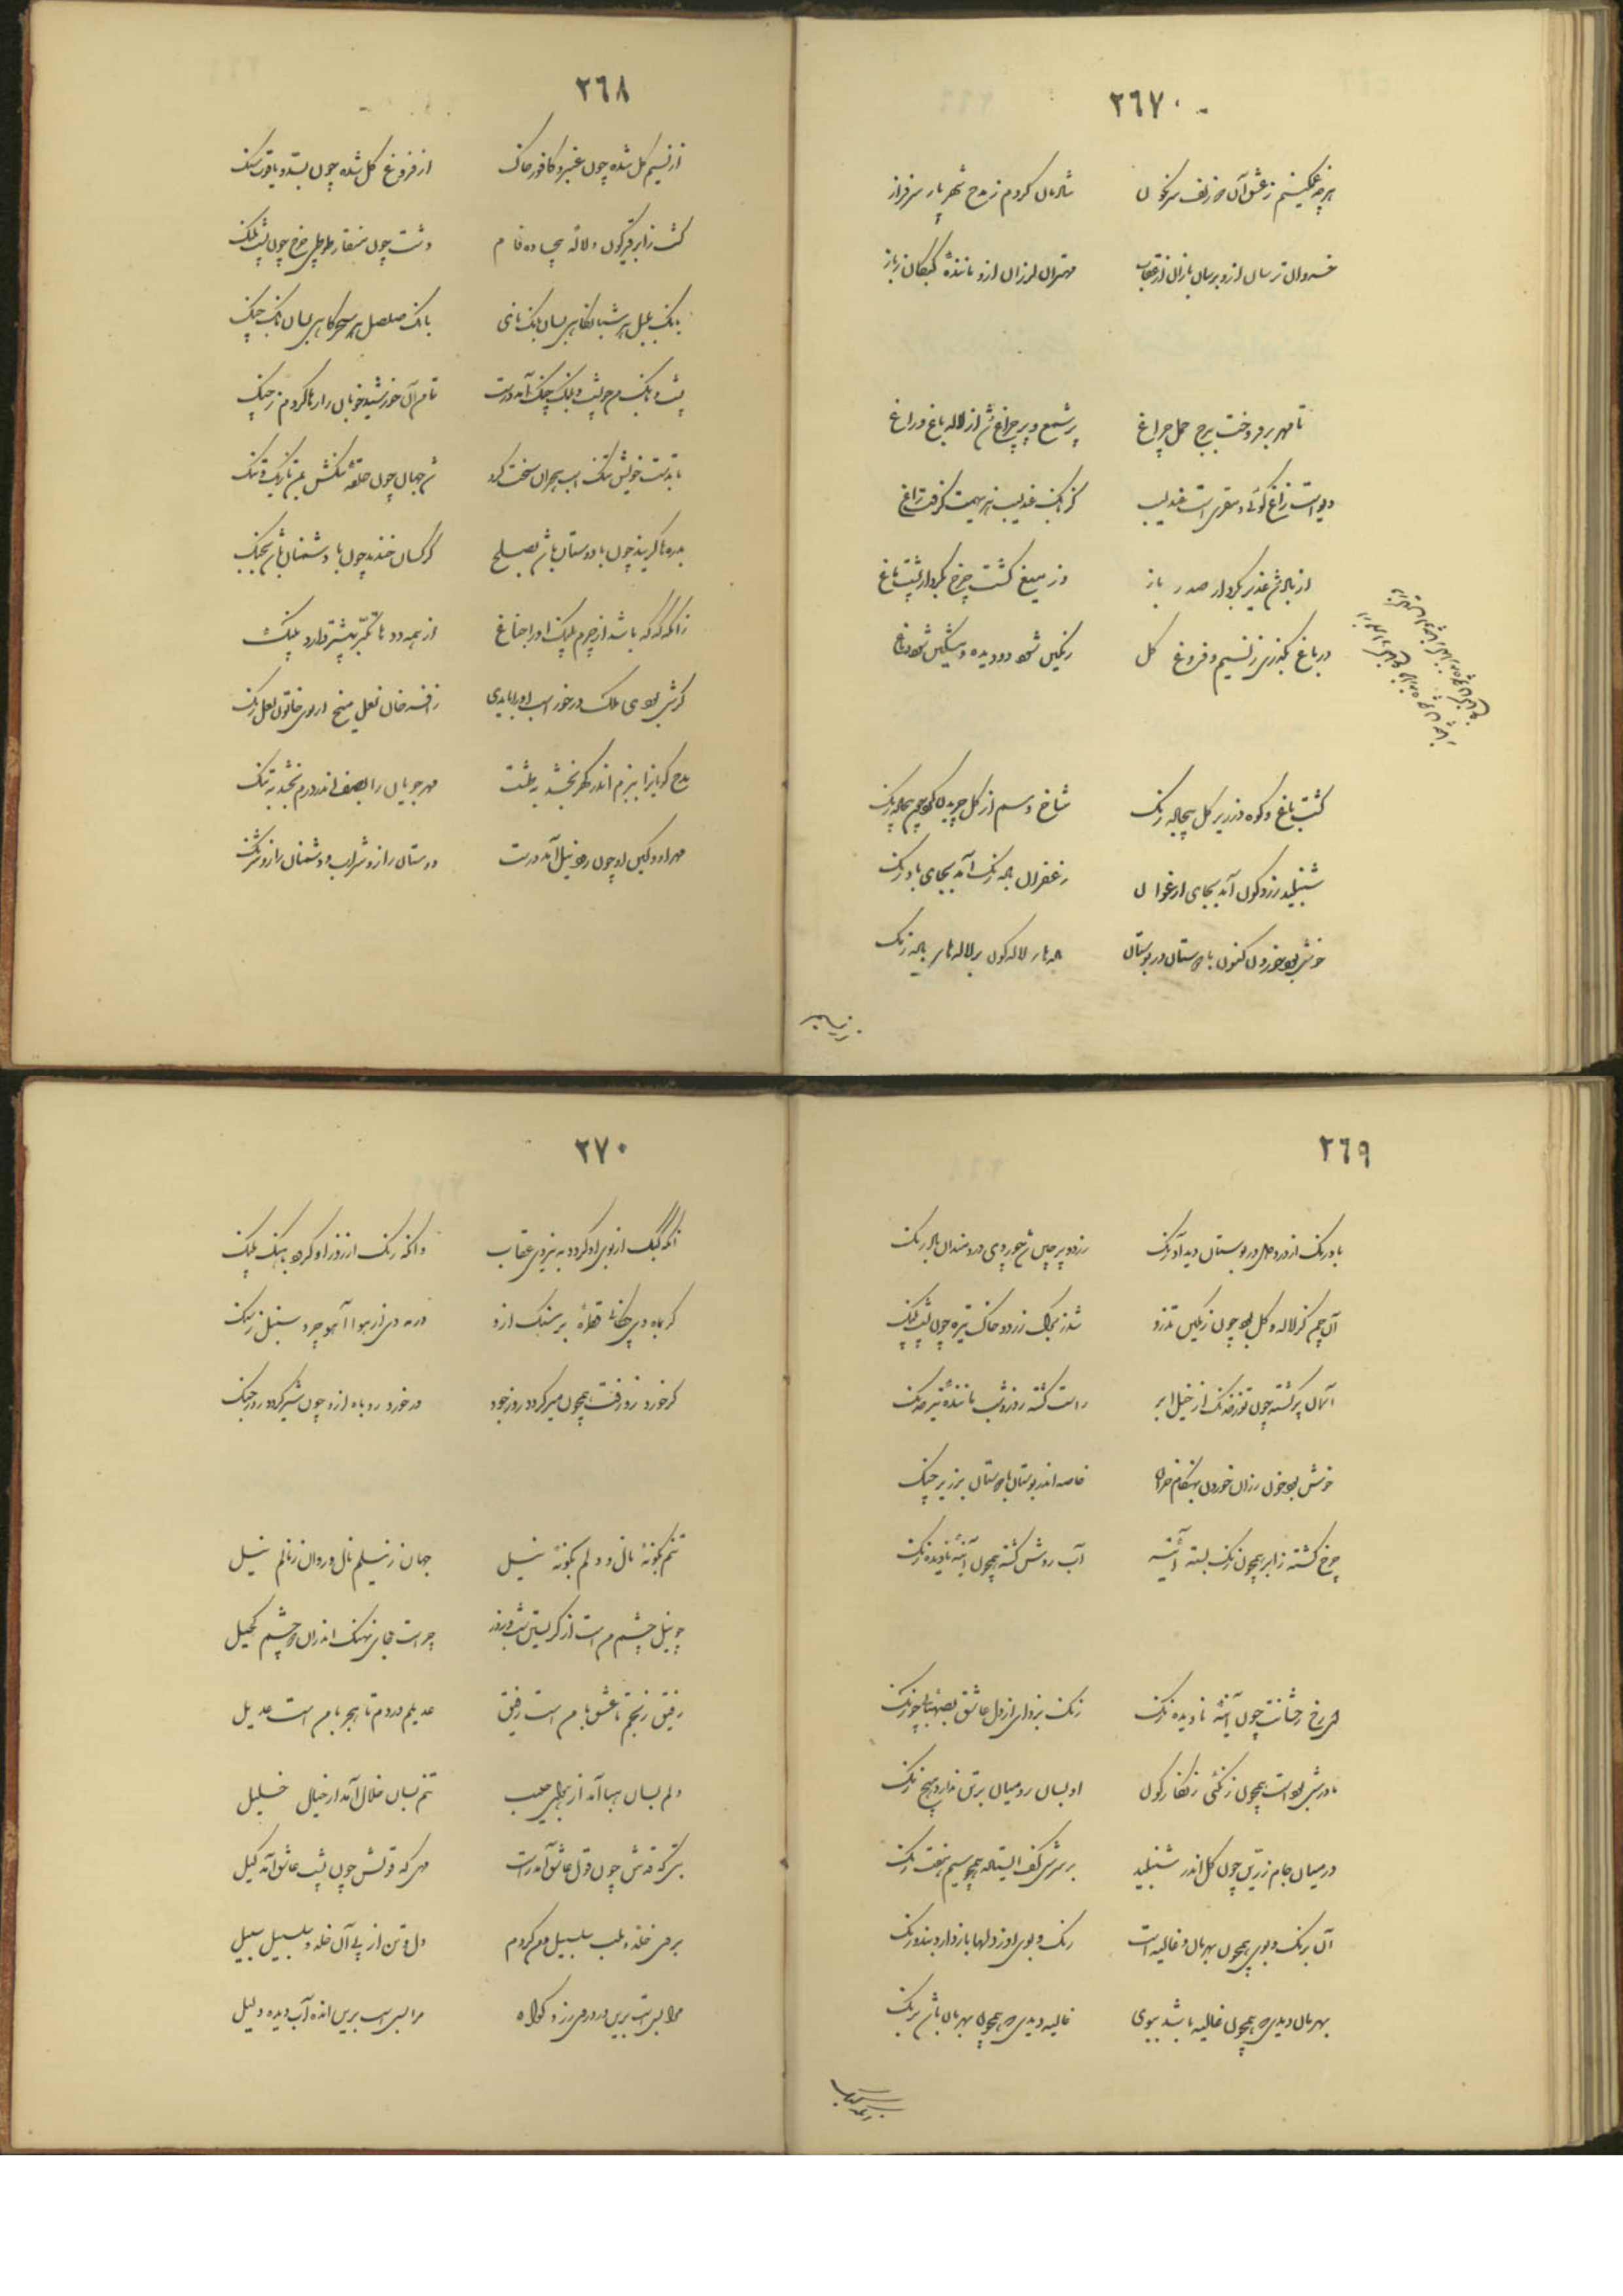 ٢٦٧
هر چه غمگینم ز عشق آن زلف سرنگون شادمان کردم ز مدح شهریار سرفراز
خسروان ترسان ازو برسان بازان از عقاب مهتران لرزان ازو ماننده کبکان ز باز
تا مهر برفروخت ببرج حمل چراغ پر شمع و پر چراغ شد از لاله باغ و راغ
دیو است زاغ گوئی و مقری است عندلیب کز بانک عندلیب هزیمت گرفت زاغ
از باد شد غدیر بکردار صدر باز وز میغ گشت چرخ بکردار پشت ماغ
در باغ بگذری ز نسیم و فروغ گل رنگین شود دو دیده و مشکین شود دماغ
گشت باغ و کوه در زیر گل بیجاده رنک شاخ
شنبلید زردگون آمد بجای ارغوان زعفران لاله رنک آمد بجای بادرنک
خوش بود خوردن کنون با دوستان در بوستان باده‌های لاله گون بر لاله‌های باده رنک
٢٦٨
از نسیم گل شده چون عنبر و کافور خاک از فروغ گل شده چون بسد و یاقوت سنک
کشت ز ابر قیرگون و لاله بیجاده فام دشت چون منقار طوطی چرخ چون پشت پلنک
بانک بلبل هر شبانگاهی بسان بانک نای بانک صلصل هر سحرگاهی بسان بانک چنک
پشت و بانک من چو پشت و بانک چنک آمد درست تا من آن خورشید خوبان را رها کردم ز چنک
تا بدست خویش تنک اسب هجران سخت کرد شد جهان چون حلقه تنکش بمن تاریک و تنک
بدره‌ها گرید چون با دوستان باشد بصلح کرکسان خندد چون با دشمنان باشد بجنک
زانکه گه گه باشد از چرم پلنک او را جناغ از همه ددها تکبر بیشتر دارد پلنک
گرش بودی ملک درخور اسب او را بایدی ز افسر خان نعل و میخ از موی خاتون
مدح گویانرا ببزم اندر گهر بخشد بطشت مهرجویان را بصف اندر درم بخشد بتنک
مهر او و کین او چون رود نیل آمد درست دوستان را زو شراب و دشمنان را زو شرنک
٢٦٩
بادرنک از درد دل در بوستان دید آذرنک زرد و پر چین شد چو روی دردمندان بادرنک
آن چمن کز لاله و گل بود چون رنگین تذرو شد ز برک زرد و خاک تیره چون پشت پلنک
آسمان پر گشته چون توز فرنک از خیل ابر راست گشته روز و شب ماننده
خوش بود خون رزان خوردن بهنگام خزان خاصه اندر بوستان با دوستان بر زیر چنک
چرخ گشته ز ابر همچون زنک بسته آئینه آب روشن گشته همچون آئینه نادیده زنک
ای رخ رخشانت چون آئینه نادیده زنک زنک بزدای از دل عاشق
او بسان رومیان بر تن ندارد هیچ زنک
در میان جام زرین چون گل اندر شنبلید بر سرش کف ایستاده همچو سیم
آن برنک و بوی همچون بهرمان و غالیه است رنک و بوی او ز دلها باز دارد بند و رنک
بهرمان دیدی که همچون غالیه باشد ببوی غالیه دیدی که همچون بهرمان باشد برنک
٢٧٠
آنکه کبک از بوی او گردد به نیروی عقاب وانکه رنک از زور او گردد بهنک پلنک
ور خورد روباه ازو چون شیر گردد روز جنک
تنم بگونه نال و دلم بگونه نیل جهان ز نیلم نال و روان ز نالم نیل
چو نیل چشم من است از گریستن شب و روز چراست جای نهنک اندران دو چشم کحیل
رفیق رنجم تا عشق با من است رفیق عدیل دردم تا هجر با من است عدیل
دلم بسان هبا آمد از هوای حبیب تنم بسان خلال آمد از خیال خلیل
بتی که قدش چون قول عاشق آمد راست مهی که قولش چون پشت عاشق آمد کیل
بروی خلد و بلب سلسبیل و من کردم دل و تن از پی آن خلد و سلسبیل سبیل
مرا بس است برین درد روی زرد گواه مرا بس است برین اندوه آب دیده دلیل